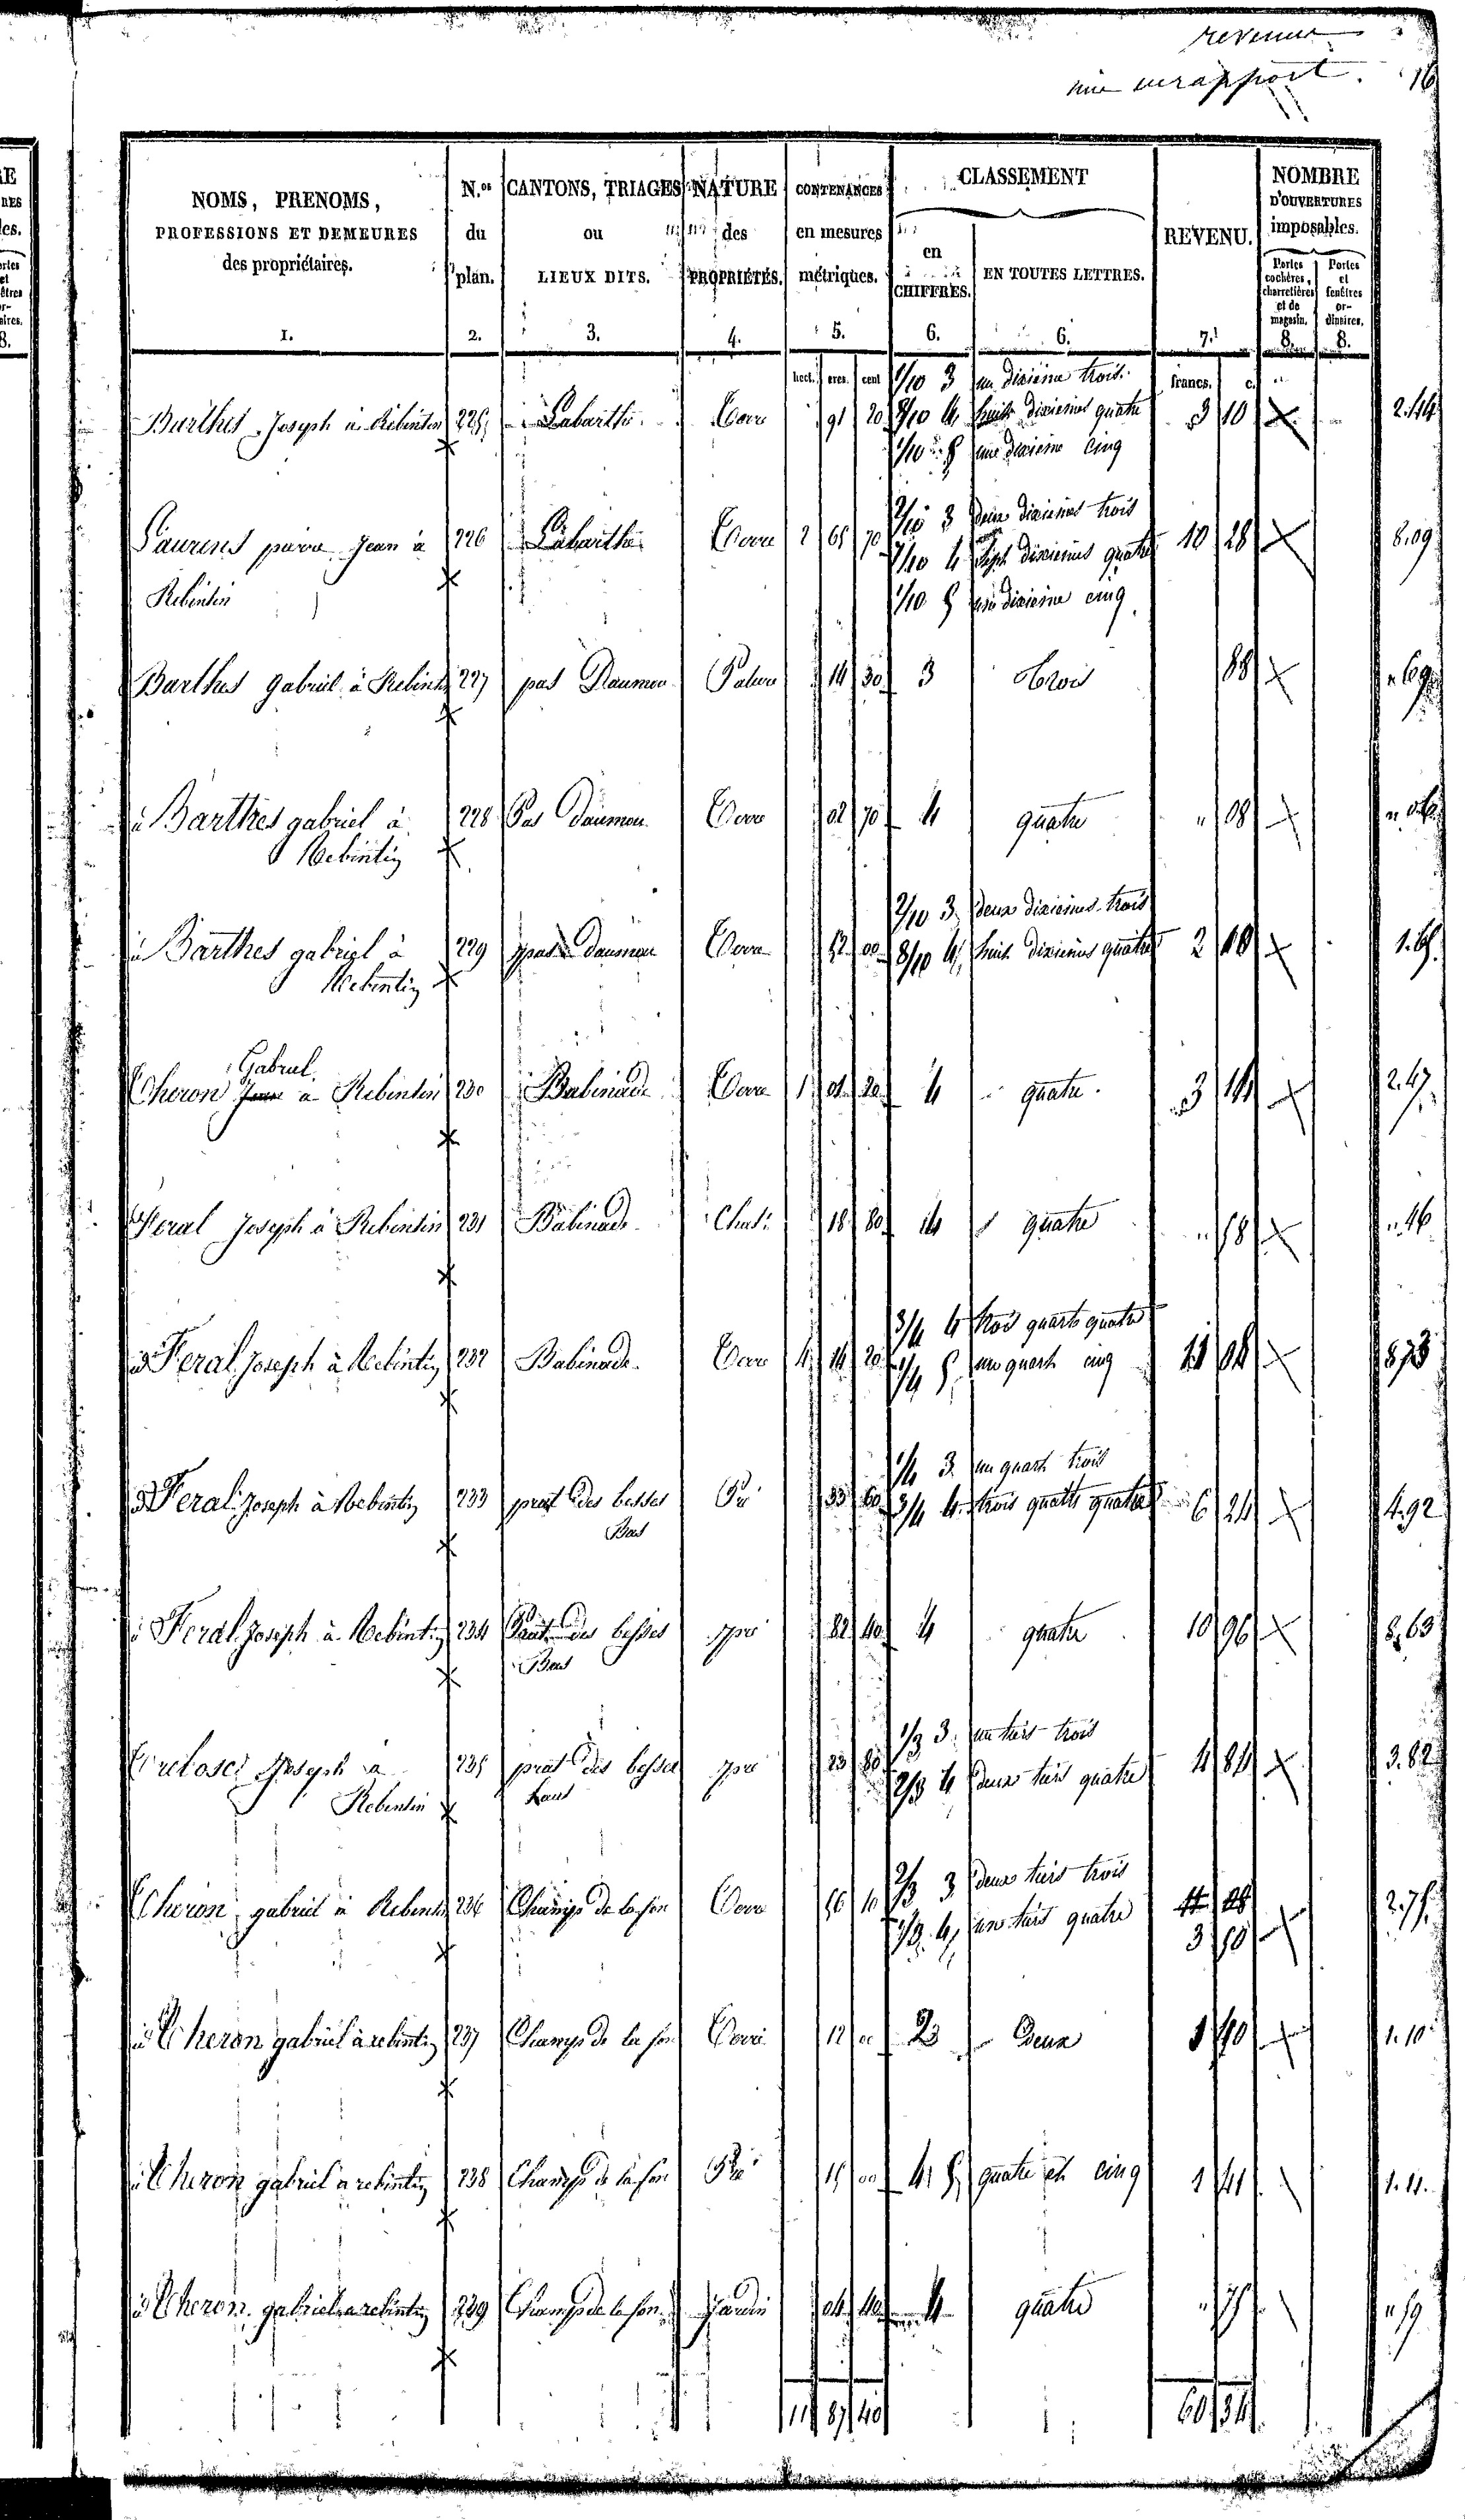 revenu
mis en rapport. 16
NOMS, PRENOMS,
PROFESSIONS ET DEMEURES
des propriétaires.
1.
N.os
du
plan.
2.
CANTONS, TRIAGES
ou
LIEUX DITS.
3.
NATURE
des
PROPRIÉTÉS.
4.
CONTENANCES
en mesures
métriques.
5.
CLASSEMENT
en
CHIFFRES.
6.
EN TOUTES LETTRES.
6.
REVENU.
7.
NOMBRE
D'OUVERTURES
imposables.
Portes cochères, charretières et de magasin.
8.
Portes et fenêtres ordinaires.
8.
hect. ares. cent francs. c.
1/10 3 un dixieme trois
Barthes Joseph à Rebentin 225 Labarthe Terre 91 20 8/10 4 huit dixiemes quatre 3 10 2.44
1/10 5 un dixieme cinq
2/10 3 deux dixiemes trois
pierre Jean à 226 Labarthe Terre 2 65 70 7/10 4 sept dixiemes quatre 10 28 8.09
Rebentin 1/10 5 un dixieme cinq
Barthes Gabriel à Rebentin 227 pas Daumon Pature 14 30 3 trois 88 " 69
Barthes gabriel à 228 Pas Daumon Terre 02 70 4 quatre " 08
Rebentin
2/10 3 deux dixiemes trois
Barthes gabriel à 229 pas Daumon Terre 52 00 8/10 4 huit dixiemes quatre 2 10
Rebentin
Gabriel
Cheron à Rebentin 230 Babinade Terre 1 01 20 4 quatre 3 14 2.47
Feral Joseph à Rebentin 231 Babinade Chat. 18 80 4 quatre " 58 ".46
3/4 4 trois quarts quatre
Feral Joseph à Rebentin 232 Babinade Terre 4 14 20 1/4 5 un quart cinq 11 8.73
1/4 3 un quart trois
Feral Joseph à Rebentin 233 prat des besses Pré 33 60 3/4 4 trois quarts quatre 6 24 4.92
Bas
Feral Joseph à Rebentin 234 Prat des besses pré 82 40 4 quatre 10 96 8.63
Bas
1/3 3 un tiers trois
Joseph à 235 prat des besses pré 23 80 2/3 4 deux tiers quatre 4 84 3.82
Rebentin haut
2/3 3 deux tiers trois
Cheron gabriel à Rebentin 236 Champs de la fon Terre 56 10 1/3 4 un tiers quatre
3 50 2.75
Cheron gabriel à rebentin 237 Champs de la fon Terre 12 00 2 Deux 1 40 1.10
Cheron gabriel à rebentin 238 Champs de la fon Pré 15 00 4 5 quatre et cinq 1 41 1.11
Cheron gabriel à rebentin 239 Champs de la fon Jardin 04 40 4 quatre " 75 " 59
11 87 40 60 34